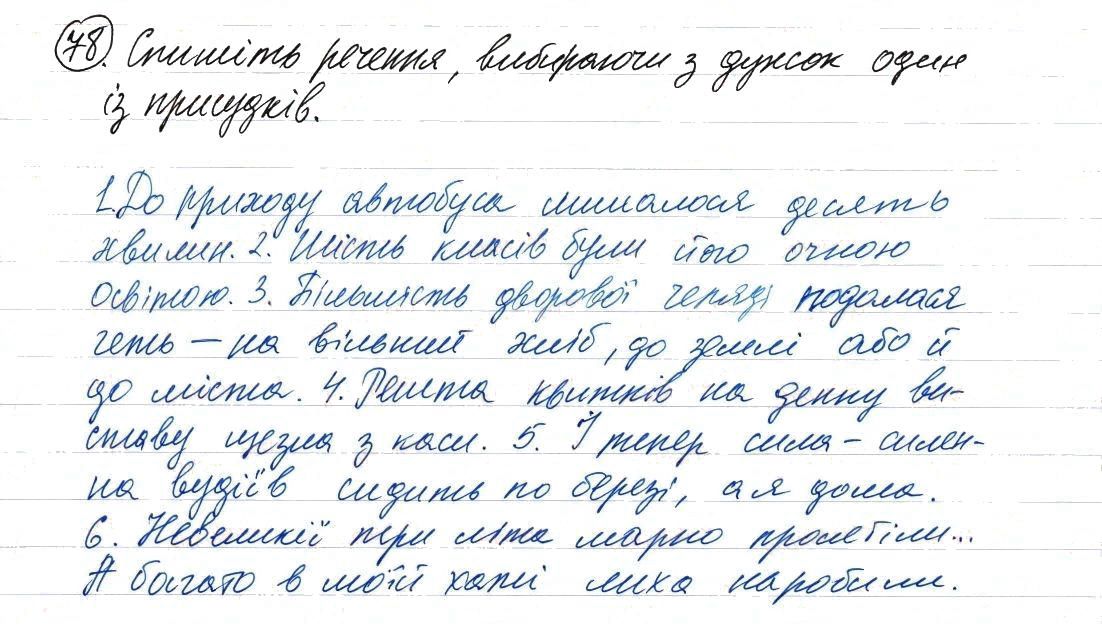 78. Спишіть речення, вибираючи з дужок один
із присудків.
1. До приходу автобуса лишалося десять
хвилин. 2. Шість класів були його очною
освітою. 3. Більшість дворової челяді подалася
геть – на вільний хліб, до землі або й
до міста. 4. Решта квитків на денну ви-
ставу щезла з каси. 5. І тепер сила-силен-
на вудіїв сидить по березі, а я дома.
6. Невеликії три літа марно пролетіли...
А багато в моїй хаті лиха наробили.